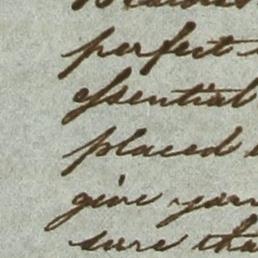 perfect
essential
placed
give your
sure tha